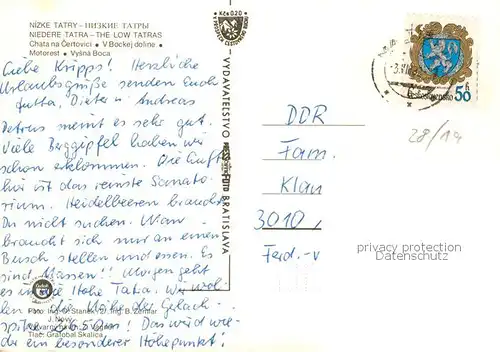 NÍZKE TATRY – НИЗКИЕ ТАТРЫ
NIEDERE TATRA – THE LOW TATRAS
Chata na Čertovici • V Bockej doline •
Motorest • Vyšná Boca
Liebe Kripps! Herzliche
Urlaubsgrüße senden Euch
Jutta, Dieter u. Andreas
Petrus meint es sehr gut.
Viele Berggipfel haben wir
schon erklommen. Die Luft
hier ist das reinste Sanato-
rium. Heidelbeeren brauchst
Du nicht suchen. Man
braucht sich nur an einen
Busch stellen und essen. Es
sind Massen!! Morgen geht
es in die Hohe Tatra. Wir wol-
len die Höhe der Gerlach-
spitze 2650m! Das wird wie-
der ein besonderer Höhepunkt!
Foto: Ing. O. Staněk
J. Nový
Tlač: Grafobal Skalica
VYDAVATEĽSTVO
FOTO
BRATISLAVA
Kčs 0,20
50
28/14
DDR
Fam.
Klau
3010
Ferd.-v
privacy protection
Watermark